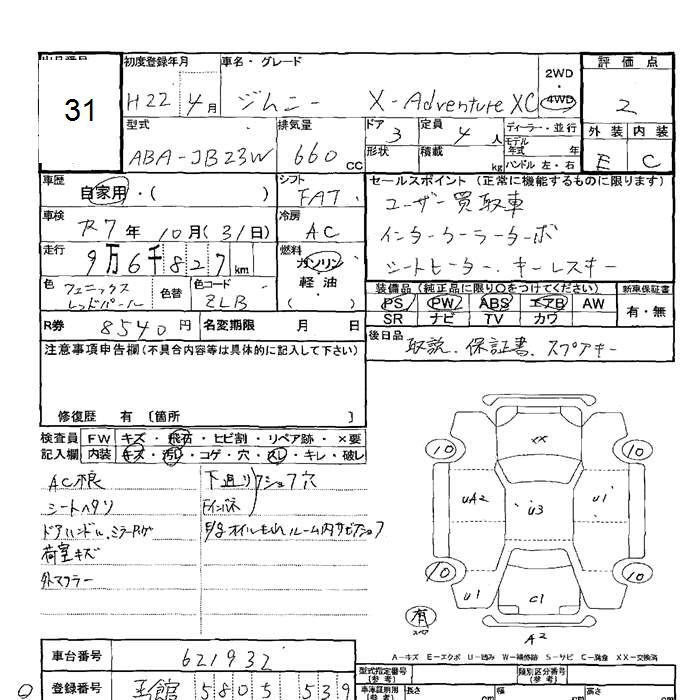 31
初度登録年月 車名・グレード 2WD・4WD 評価点
H22 4月 ジムニー X-Adventure XC 2
型式 排気量 ドア 定員 ディーラー・並行 外装 内装
ABA-JB23W 660cc 3 4人 モデル年式 年
形状 積載 kg ハンドル 左・右 E C
車歴 シフト セールスポイント(正常に機能するものに限ります)
自家用・( ) FAT ユーザー買取車
車検 冷房
R7年10月(31日) AC インタークーラーターボ
走行 燃料
9万6千827km ガソリン シートヒーター.キーレスキー
色 色替 色コード 軽油
フェニックスレッドパール ZLB ( )
装備品(純正品に限り○をつけてください) 新車保証書
PS PW ABS エアB AW 有・無
SR ナビ TV カワ
R券 8540円 名変期限 月 日
後日品 取説.保証書.スペアキー
注意事項申告欄(不具合内容等は具体的に記入して下さい)
修復歴 有 〔箇所 〕
検査員 FW キズ・飛石・ヒビ割・リペア跡・×要
記入欄 内装 キズ・汚レ・コゲ・穴・スレ・キレ・破レ
AC 下廻り
シートヘタリ
ドアハンドル.ミラー
荷室キズ
外マフラー
XX
10 10
UA2 U3 U1
10 10
U1 C1
有 スペア
A2
A-キズ E-エクボ U-凹み W-補修跡 S-サビ C-腐食 XX-交換済
車台番号 621932
型式指定番号(参考) 類別区分番号(参考)
登録番号 5805 539
長さ cm 幅 cm 高さ cm